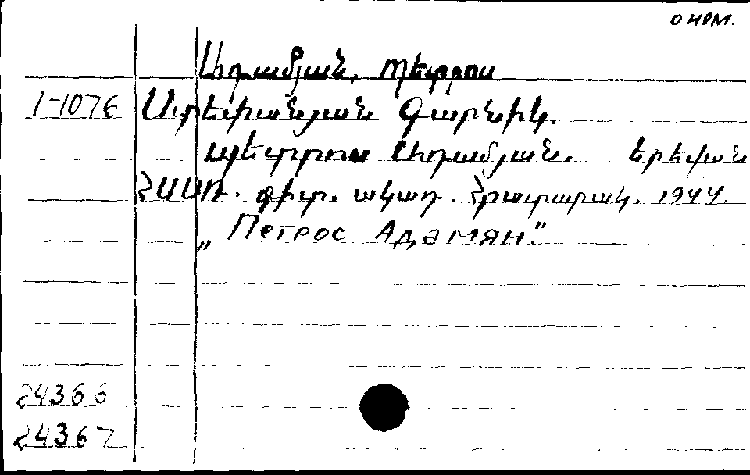 ОНРМ.
Ադամյան, Պետրոս
1-1076 Ստեփանյան Գառնիկ.
Պետրոս Ադամյան. Երեվան
ՀՍՍՌ. գիտ. ակադ. հրատարակ. 1944.
„Петрос Адамян."
24366
24367